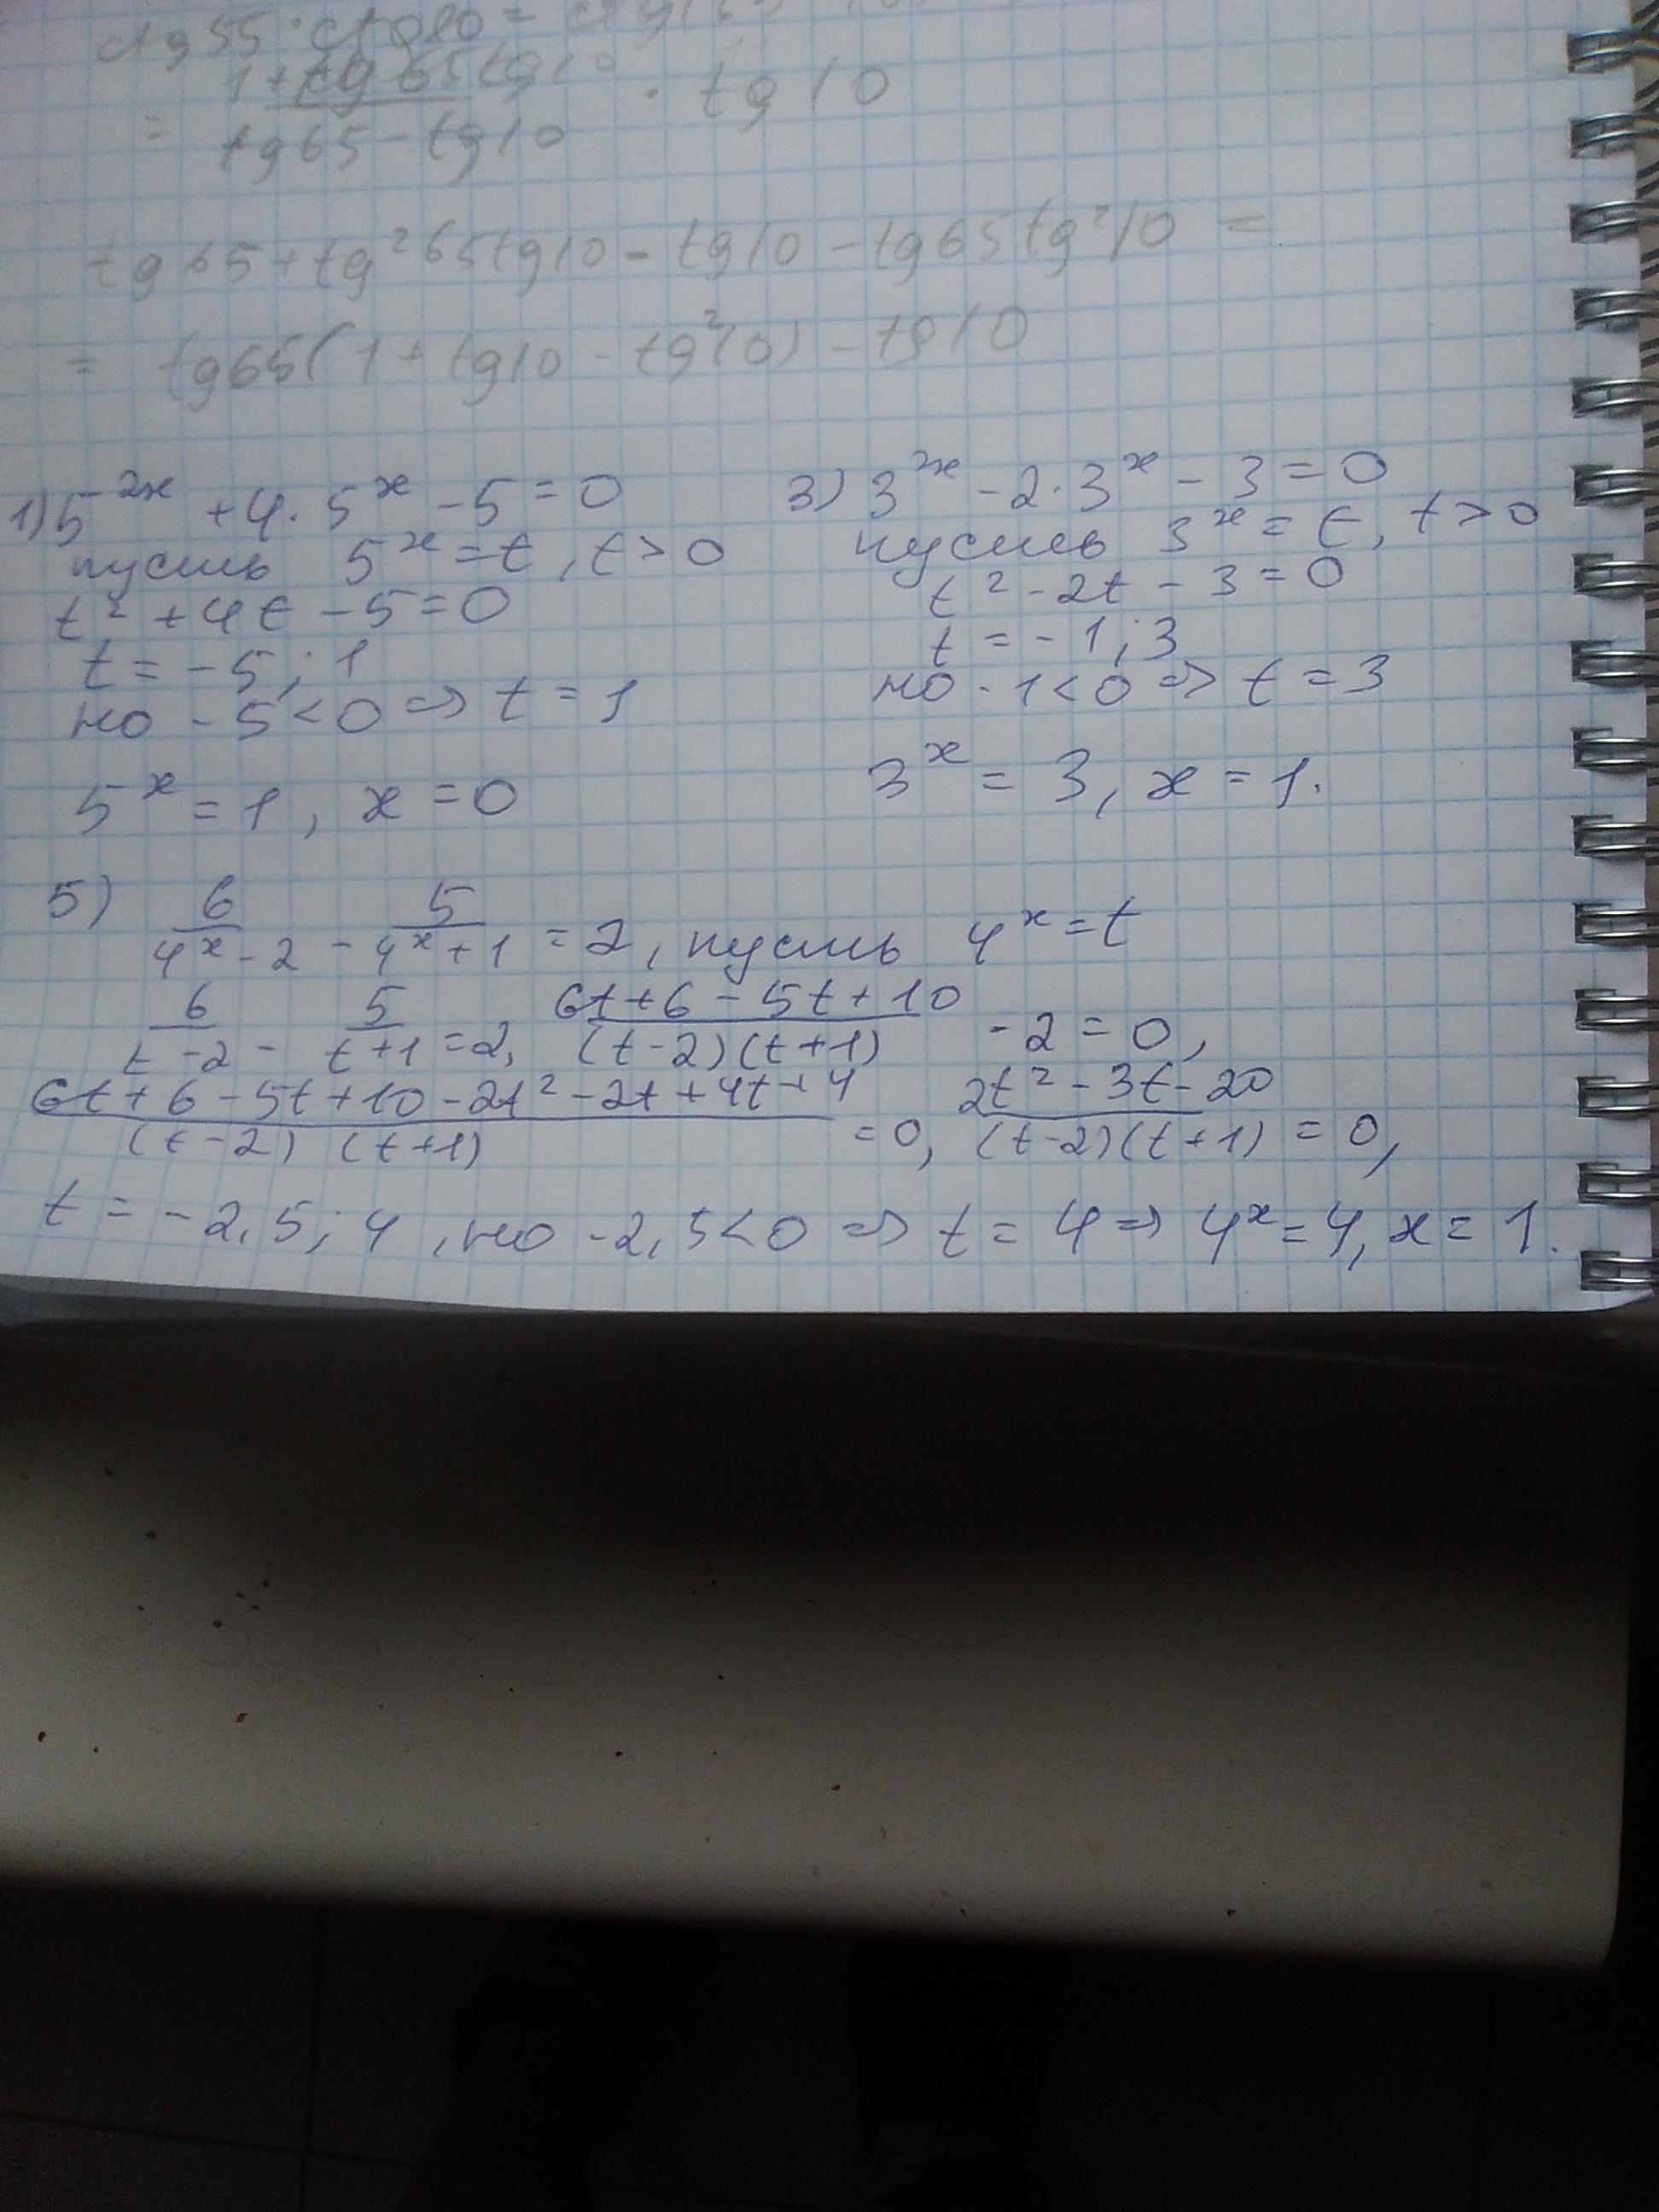 ctg55 · ctg80 =
1 + tg65 tg10
= ――― · tg10
tg65 - tg10
tg65 + tg²65tg10 - tg10 - tg65tg²10 =
= tg65(1 + tg10 - tg²10) - tg10
1) 5^2x + 4·5^x - 5 = 0
пусть 5^x = t, t > 0
t² + 4t - 5 = 0
t = -5; 1
но -5 < 0 => t = 1
5^x = 1, x = 0
3) 3^2x - 2·3^x - 3 = 0
пусть 3^x = t, t > 0
t² - 2t - 3 = 0
t = -1; 3
но -1 < 0 => t = 3
3^x = 3, x = 1.
5) 6/(4^x - 2) - 5/(4^x + 1) = 2, пусть 4^x = t
6/(t - 2) - 5/(t + 1) = 2, (6t + 6 - 5t + 10)/((t - 2)(t + 1)) - 2 = 0,
(6t + 6 - 5t + 10 - 2t² - 2t + 4t + 4)/((t - 2)(t + 1)) = 0, (2t² - 3t - 20)/((t - 2)(t + 1)) = 0,
t = -2,5; 4, но -2,5 < 0 => t = 4 => 4^x = 4, x = 1.